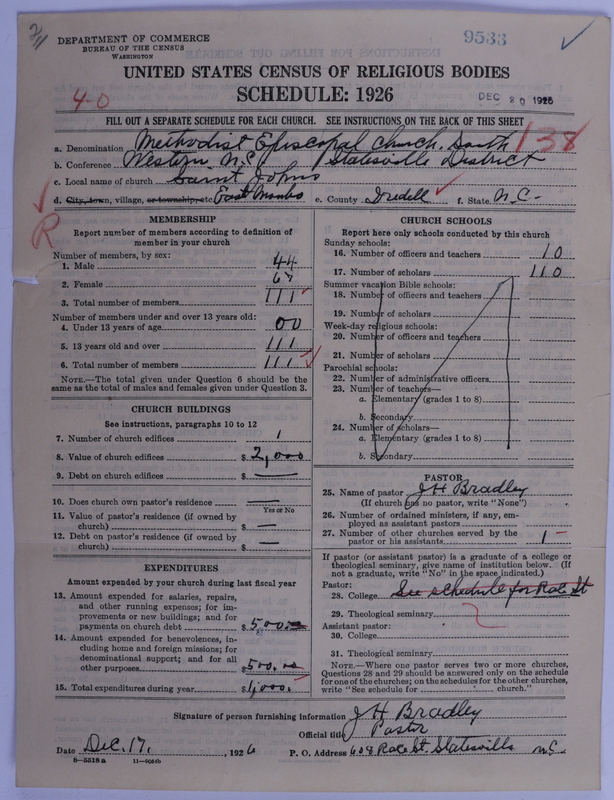 DEPARTMENT OF COMMERCE
BUREAU OF THE CENSUS
WASHINGTON
9533
UNITED STATES CENSUS OF RELIGIOUS BODIES
SCHEDULE: 1926
4-0
DEC 20 1926
FILL OUT A SEPARATE SCHEDULE FOR EACH CHURCH. SEE INSTRUCTIONS ON THE BACK OF THIS SHEET
138
a. Denomination Methodist Episcopal Church, South
b. Conference Western N.C. / Statesville District
c. Local name of church Saint Johns
d. City, town, village, or township, etc East Monbo e. County Iredell f. State N.C.
R
MEMBERSHIP
Report number of members according to definition of
member in your church
Number of members, by sex:
1. Male 44
2. Female 67
3. Total number of members 111
Number of members under and over 13 years old:
4. Under 13 years of age 00
5. 13 years old and over 111
6. Total number of members 111
NOTE.—The total given under Question 6 should be the
same as the total of males and females given under Question 3.
CHURCH BUILDINGS
See instructions, paragraphs 10 to 12
7. Number of church edifices 1
8. Value of church edifices $ 2,000
9. Debt on church edifices $ —
10. Does church own pastor's residence —
Yes or No
11. Value of pastor's residence (if owned by
church) $ —
12. Debt on pastor's residence (if owned by
church) $ —
EXPENDITURES
Amount expended by your church during last fiscal year
13. Amount expended for salaries, repairs,
and other running expenses; for im-
provements or new buildings; and for
payments on church debt $ 500.00
14. Amount expended for benevolences, in-
cluding home and foreign missions; for
denominational support; and for all
other purposes $ 500.00
15. Total expenditures during year $ 1,000.
CHURCH SCHOOLS
Report here only schools conducted by this church
Sunday schools:
16. Number of officers and teachers 10
17. Number of scholars 110
Summer vacation Bible schools:
18. Number of officers and teachers
19. Number of scholars
Week-day religious schools:
20. Number of officers and teachers
21. Number of scholars
Parochial schools:
22. Number of administrative officers
23. Number of teachers—
a. Elementary (grades 1 to 8)
b. Secondary
24. Number of scholars—
a. Elementary (grades 1 to 8)
b. Secondary
PASTOR
25. Name of pastor J H Bradley
(If church has no pastor, write "None")
26. Number of ordained ministers, if any, em-
ployed as assistant pastors
27. Number of other churches served by the
pastor or his assistants 1
If pastor (or assistant pastor) is a graduate of a college or
theological seminary, give name of institution below. (If
not a graduate, write "No" in the space indicated.)
Pastor:
28. College See schedule for Race St
29. Theological seminary
Assistant pastor:
30. College
31. Theological seminary
NOTE.—Where one pastor serves two or more churches,
Questions 28 and 29 should be answered only on the schedule
for one of the churches; on the schedules for the other churches,
write "See schedule for church."
Signature of person furnishing information J H Bradley
Official title Pastor
Date Dec. 17, 1926 P. O. Address 608 Race St. Statesville N.C.
8—5518 a 11—9034b